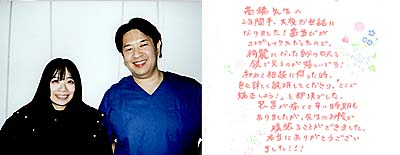 高橋先生へ
2年間半、大変お世話に
なりました！歯並びが
コンプレックスだったので、
綺麗になった自分の歯を
鏡で見るのが嬉しいです！
初めて相談に伺った時、
説明してくださり、「ここで
矯正しよう！」と即決でした。
ありましたが、先生のお陰で
頑張ることができました。
本当にありがとうござい
ました！！！